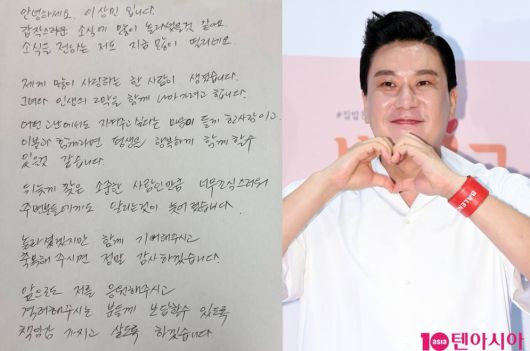 안녕하세요. 이상민 입니다.
갑작스러운 소식에 많이 놀라셨을것 같아요.
소식을 전하는 저도 지금 많이 떨리네요.
제게 많이 사랑하는 한 사람이 생겼습니다.
그녀와 인생의 2막을 함께 나아가려고 합니다.
어떤 고난에서도 지켜주고 싶다는 마음이 들게 한 사람이고,
이분과 함께라면 평생을 행복하게 함께 할수
있을것 같습니다.
뒤늦게 찾은 소중한 사람인만큼 너무 조심스러워
주변분들에게도 알리는것이 늦어 졌습니다.
놀라셨겠지만 함께 기뻐해주시고
축복해 주시면 정말 감사하겠습니다.
앞으로도 저를 응원해주시고
격려해주시는 분들께 보답할수 있도록
책임감 가지고 살도록 하겠습니다.
#김밥
BALEN
10 ASIA 텐아시아